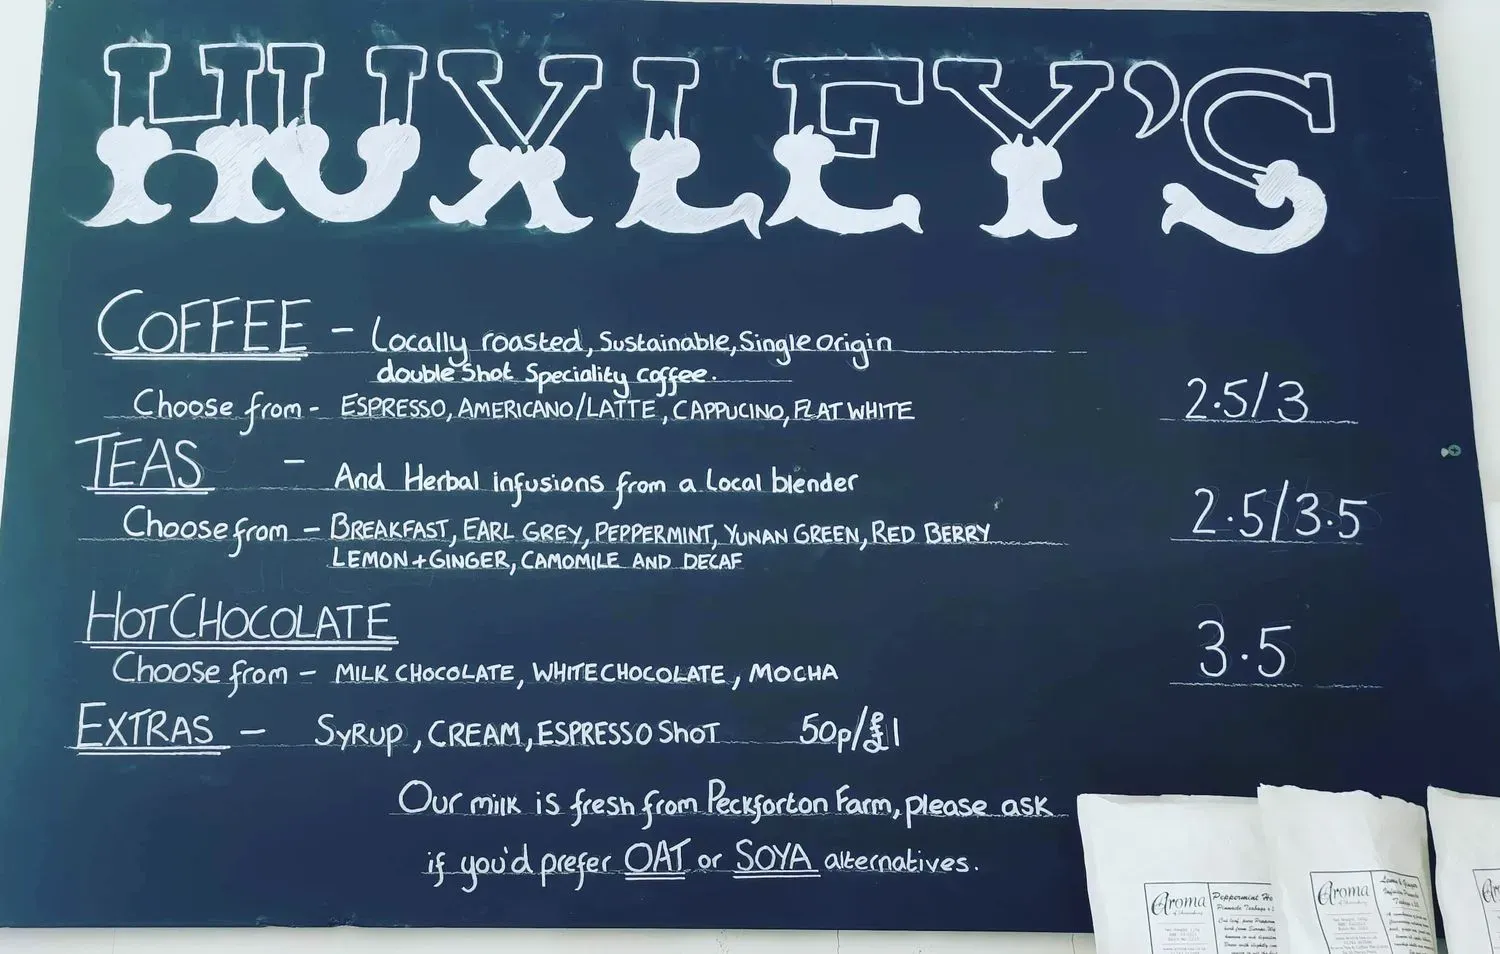 HUXLEY'S
COFFEE - Locally roasted, Sustainable, Single origin
double shot Speciality coffee.
Choose from - ESPRESSO, AMERICANO/LATTE, CAPPUCINO, FLAT WHITE 2.5/3
TEAS - And Herbal infusions from a Local blender
Choose from - BREAKFAST, EARL GREY, PEPPERMINT, YUNAN GREEN, RED BERRY 2.5/3.5
LEMON + GINGER, CAMOMILE AND DECAF
HOT CHOCOLATE
Choose from - MILK CHOCOLATE, WHITE CHOCOLATE, MOCHA 3.5
EXTRAS - SYRUP, CREAM, ESPRESSO SHOT 50p/£1
Our milk is fresh from Peckforton Farm, please ask
if you'd prefer OAT or SOYA alternatives.
Aroma
Peppermint
Aroma